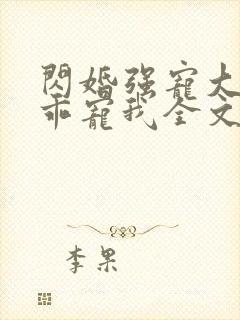 閃婚强寵大
乖寵我全文
李果